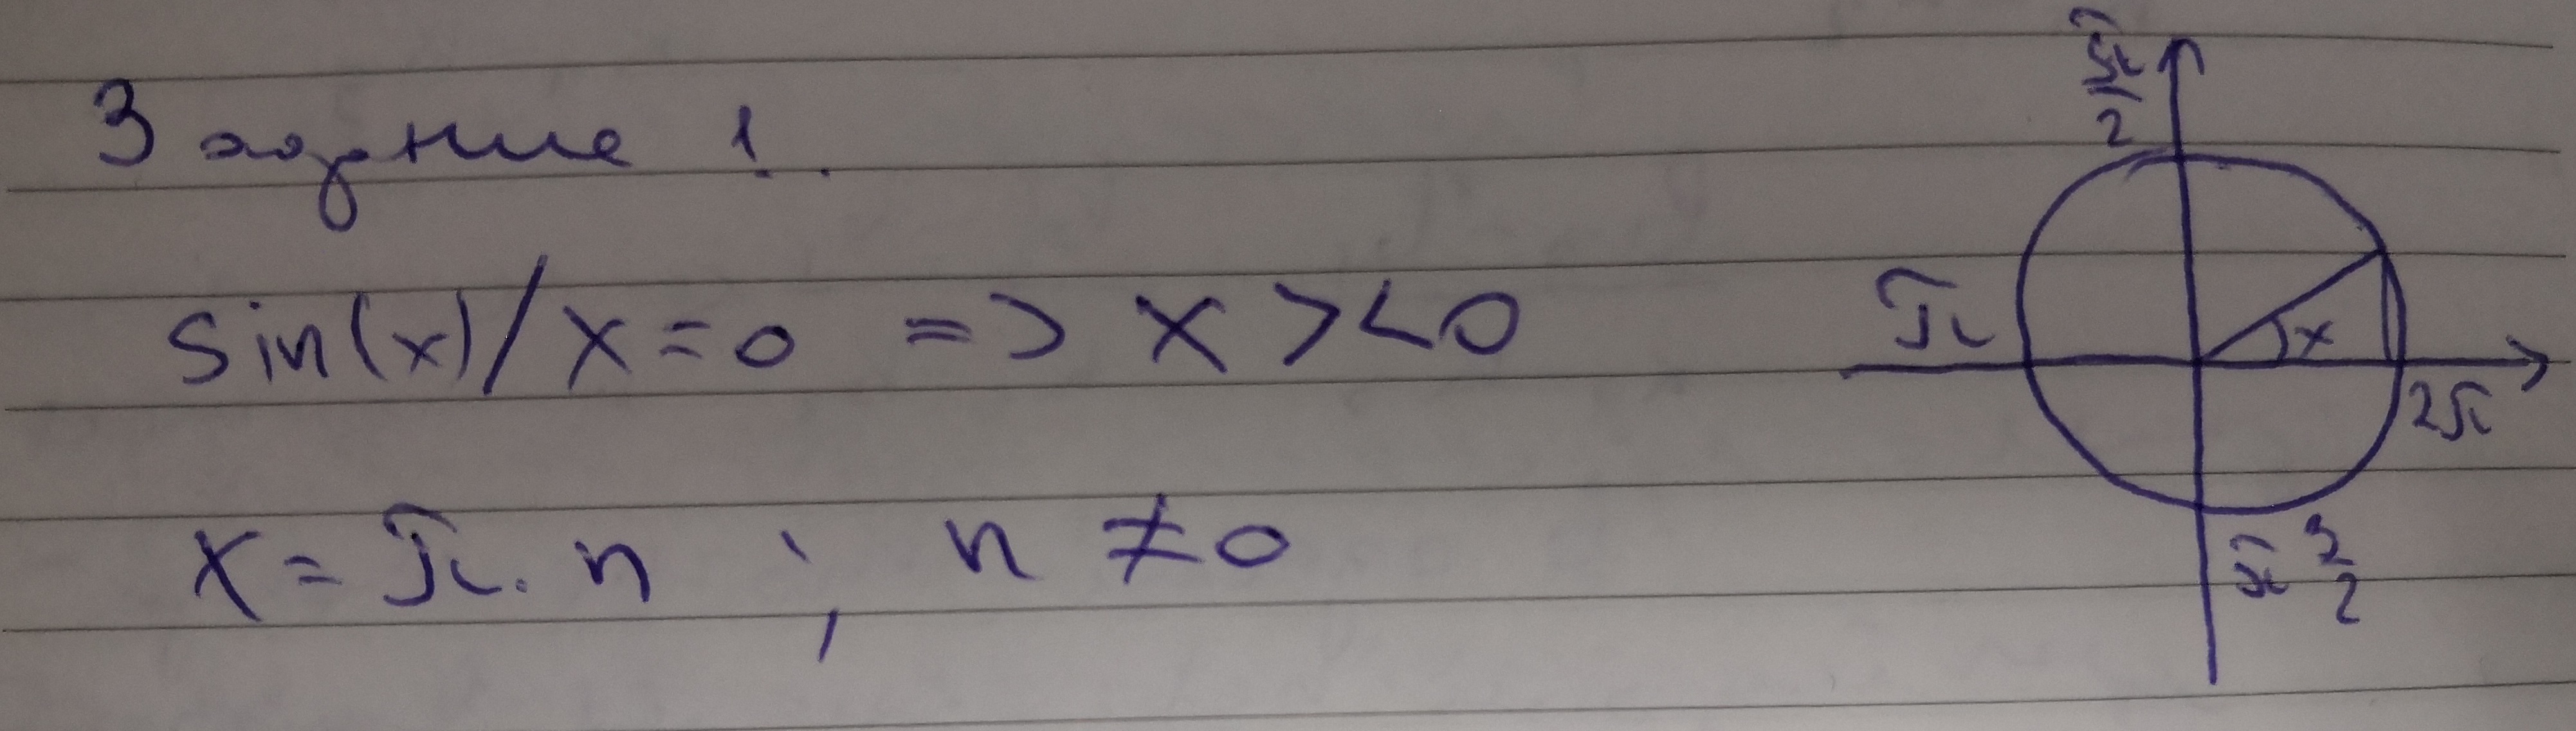 Задание 1.
sin(x)/x=0 => x ><0
x = π · n ; n ≠ 0
π/2
π
x
2π
π 3/2